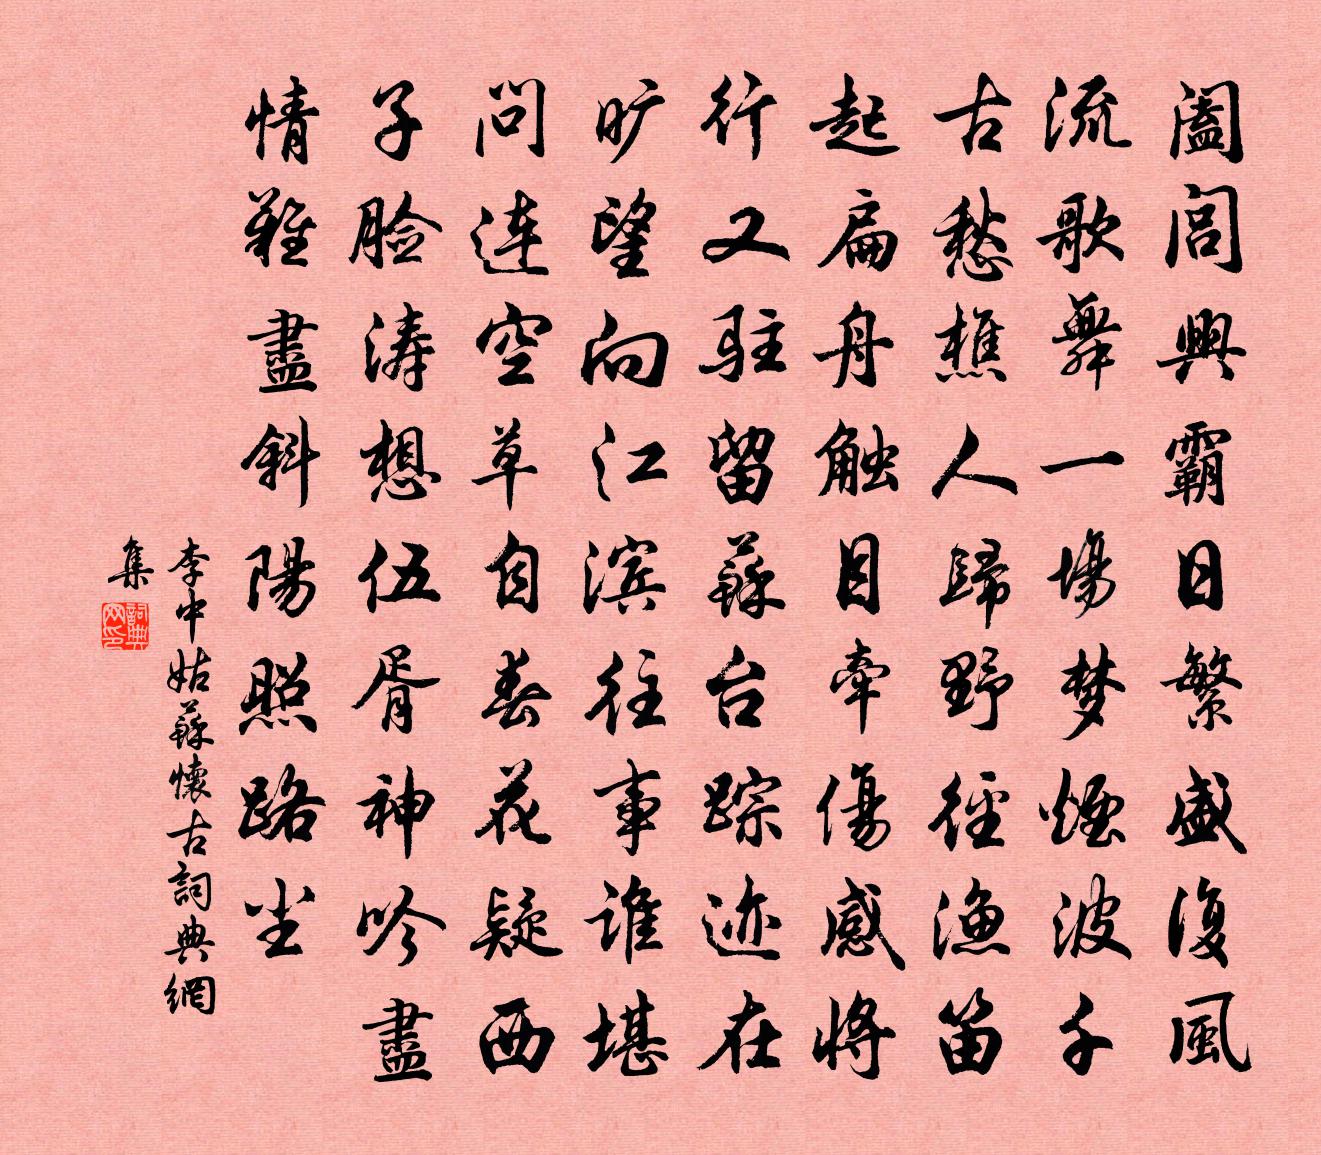 阖閭興霸日繁盛復風
流歌舞一場梦煙波千
古愁樵人歸野徑漁笛
起扁舟触目牽傷感將
行又驻留蘇台踪迹在
旷望向江滨往事谁堪
问連空草自春花疑西
子脸涛想伍胥神吟盡
情難盡斜陽照路尘
李中姑蘇懷古詞典網
集
詞典网印